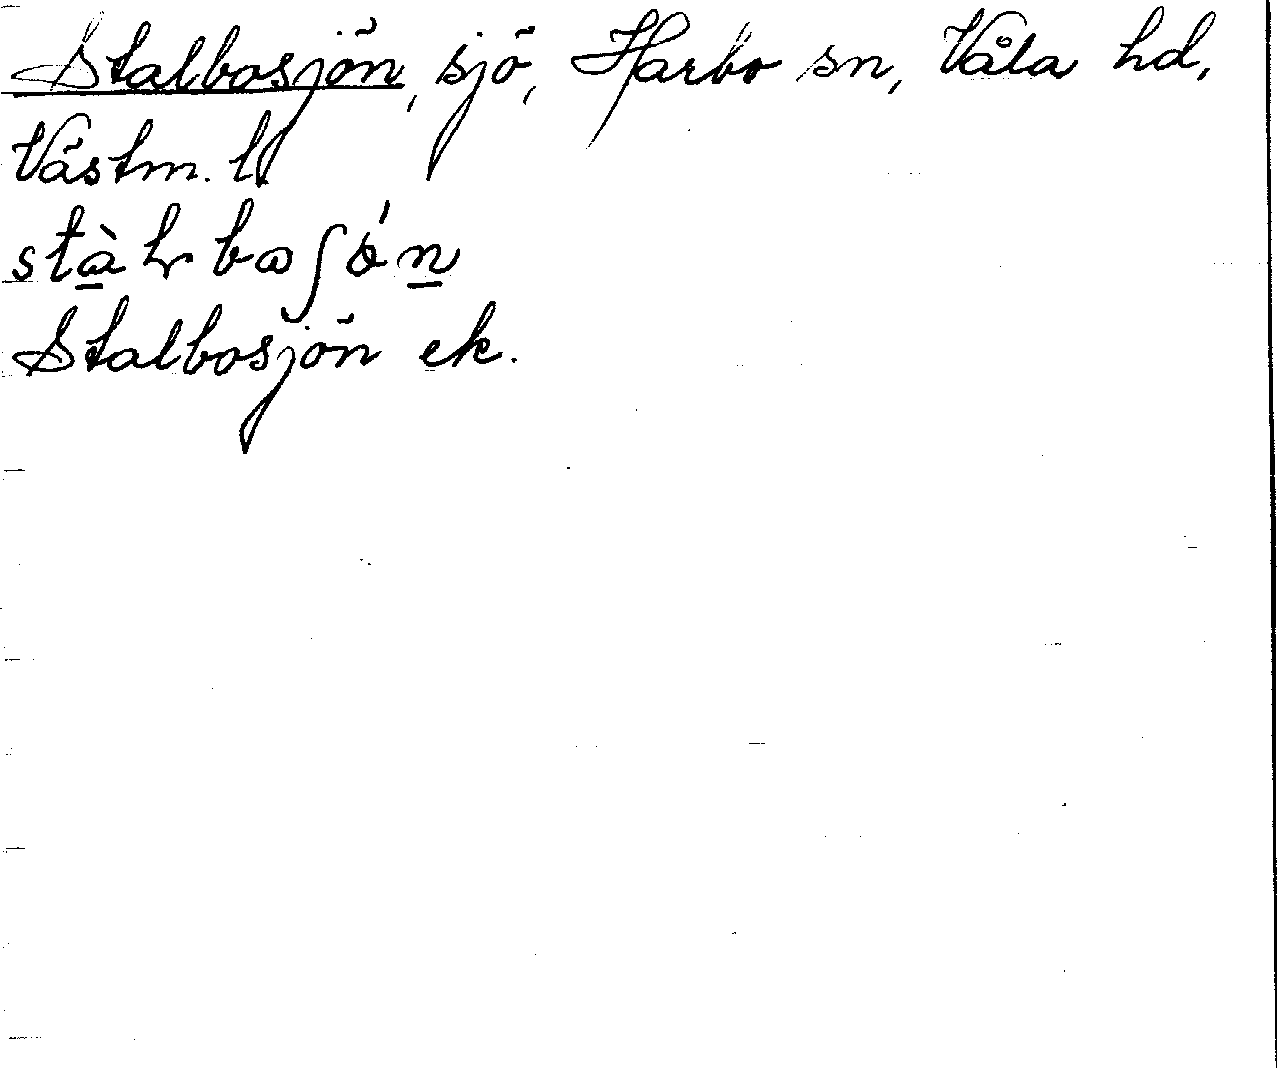 Stalbosjön, sjö, Harbo sn, Våla hd,
Västm. l.
Stalbosjön ek.